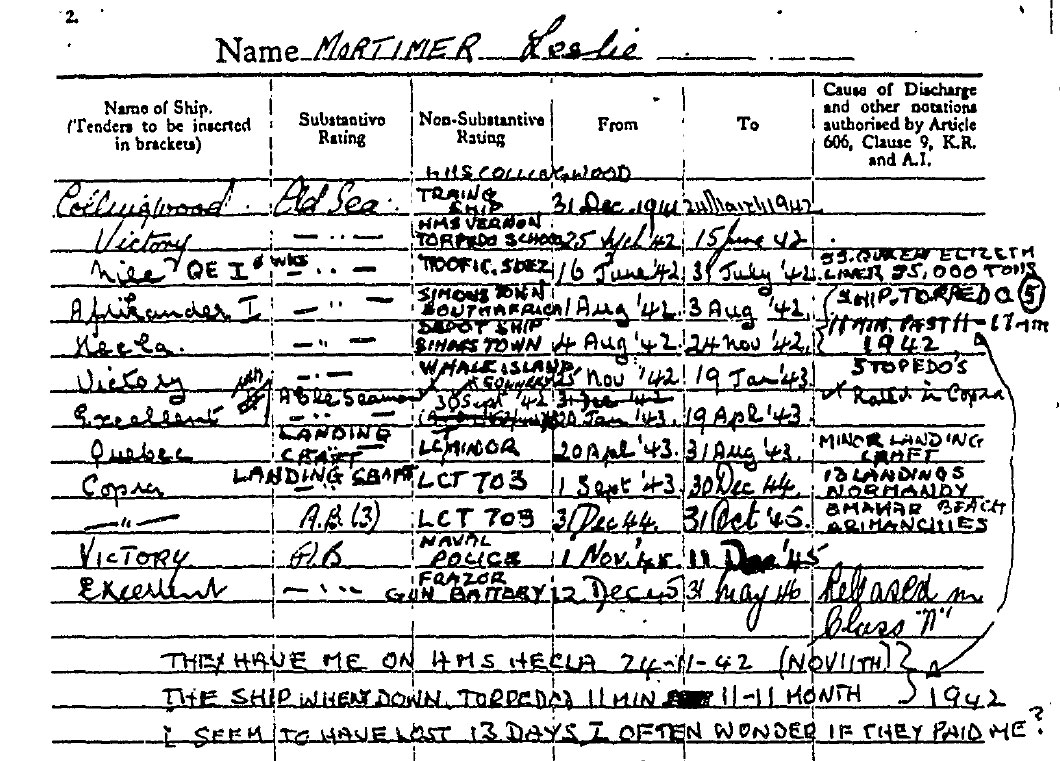 2.
Name MORTIMER Leslie
Name of Ship. (Tenders to be inserted in brackets)
Substantive Rating
Non-Substantive Rating
From
To
Cause of Discharge and other notations authorised by Article 606, Clause 9, K.R. and A.I.
HMS COLLINGWOOD
Collingwood Old Sea. TRAING SHIP 31 Dec. 1941 24 March 1942
Victory — " — HMS VERNON TORPEDO SCHOOL 25 '42 15 June 42
Nile QE I — " — TOOFIC. SUEZ 16 June '42 31 July '42 SS. QUEEN LINER 85,000 TONS
Afrikander I — " — SIMONS TOWN SOUTH AFRICA 1 Aug '42. 3 Aug '42. SHIP. TORPEDO (5)
Hecla. — " — DEPOT SHIP TOWN 4 Aug '42. 24 Nov '42. 11 MIN. PAST 11 - 1942
Victory — " — WHALE ISLAND GUNNERY 25 Nov '42 19 Jan '43 5 TOPEDO'S
Excellent Able Seaman — " — 30 Sept '42 31 Dec '42 20 Jan '43. 19 Apl '43 x Rated in Copra
Quebec LANDING CRAFT LC MINOR 20 Apl '43. 31 Aug '43. MINOR LANDING CRAFT
Copra LANDING CRAFT — " — LCT 703 1 Sept '43. 30 Dec 44. LANDINGS NORMANDY
— " — A.B. (3) LCT 709 31 Dec 44. 31 Oct '45. BEACH
VICTORY A.B NAVAL POLICE 1 Nov. '45 11 Dec '45
Excellent — " — FRAZOR GUN BATTERY 12 Dec 45 31 May 46 Released in Class "A"
THEY HAVE ME ON HMS HECLA 24-11-42 (NOV 11TH)
THE SHIP WHEN DOWN. TORPEDO 11 MIN 11-11 MONTH 1942
I SEEM TO HAVE LOST 13 DAYS I OFTEN WONDER IF THEY PAID ME?